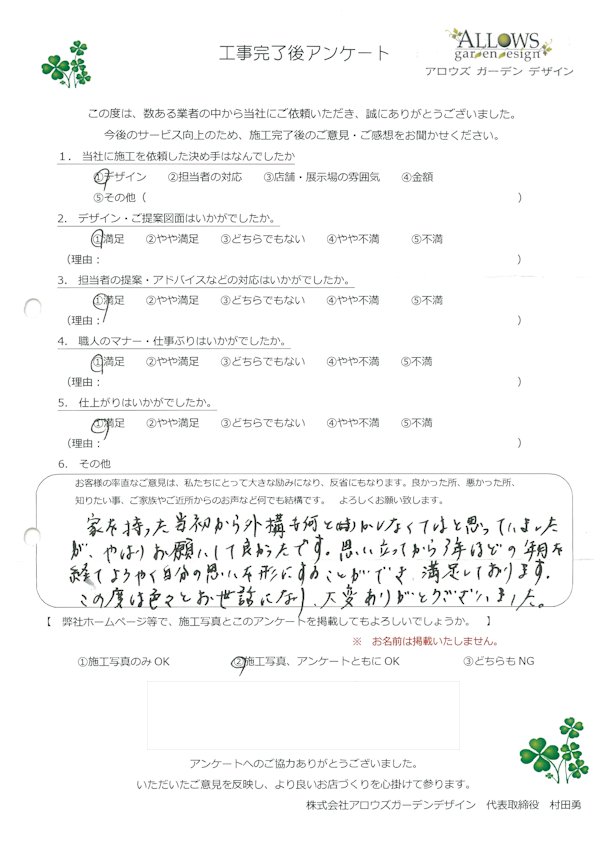 工事完了後アンケート
ALLOWS
garden design
アロウズ ガーデン デザイン
この度は、数ある業者の中から当社にご依頼いただき、誠にありがとうございました。
今後のサービス向上のため、施工完了後のご意見・ご感想をお聞かせください。
1. 当社に施工を依頼した決め手はなんでしたか
①デザイン ②担当者の対応 ③店舗・展示場の雰囲気 ④金額
⑤その他( )
2. デザイン・ご提案図面はいかがでしたか。
①満足 ②やや満足 ③どちらでもない ④やや不満 ⑤不満
(理由: )
3. 担当者の提案・アドバイスなどの対応はいかがでしたか。
①満足 ②やや満足 ③どちらでもない ④やや不満 ⑤不満
(理由: )
4. 職人のマナー・仕事ぶりはいかがでしたか。
①満足 ②やや満足 ③どちらでもない ④やや不満 ⑤不満
(理由: )
5. 仕上がりはいかがでしたか。
①満足 ②やや満足 ③どちらでもない ④やや不満 ⑤不満
(理由: )
6. その他
お客様の率直なご意見は、私たちにとって大きな励みになり、反省にもなります。良かった所、悪かった所、
知りたい事、ご家族やご近所からのお声など何でも結構です。 よろしくお願い致します。
家を持った当初から外構を何とかしなくてはと思っていました
が、やはりお願いして良かったです。思い立ってから3年ほどの年月を
経てようやく自分の思いを形にすることができ、満足しております。
この度は色々とお世話になり、大変ありがとうございました。
【 弊社ホームページ等で、施工写真とこのアンケートを掲載してもよろしいでしょうか。 】
※ お名前は掲載いたしません。
①施工写真のみOK ②施工写真、アンケートともにOK ③どちらもNG
アンケートへのご協力ありがとうございました。
いただいたご意見を反映し、より良いお店づくりを心掛けて参ります。
株式会社アロウズガーデンデザイン 代表取締役 村田勇